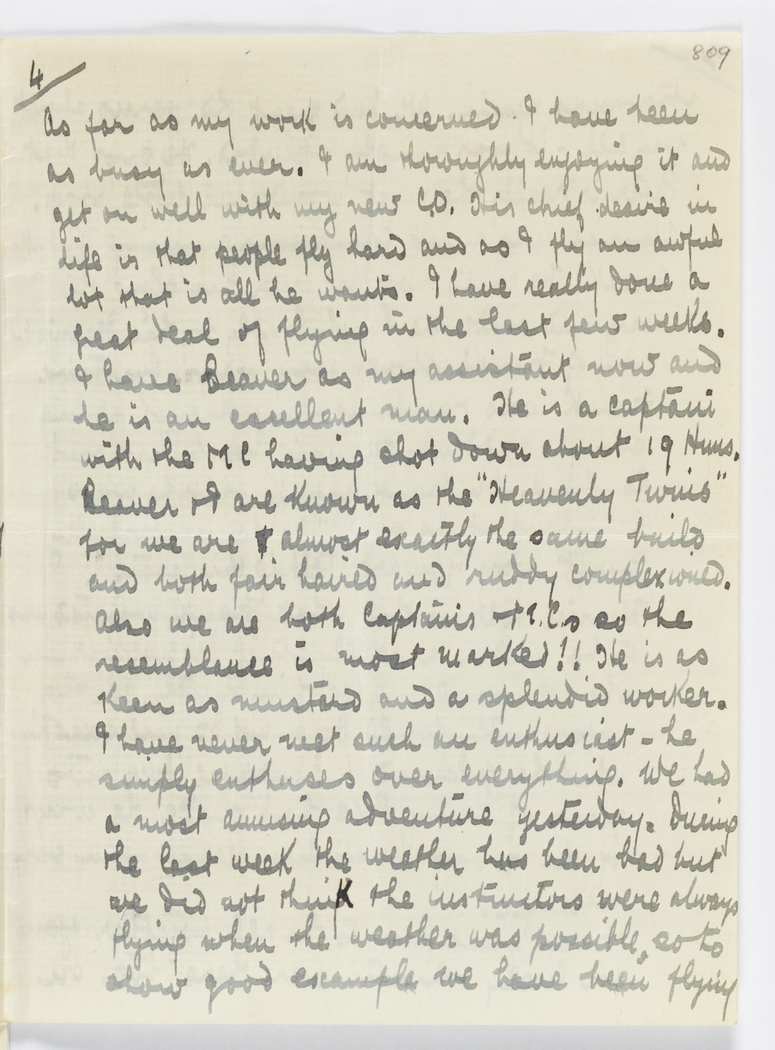 809
4
As far as my work is concerned. I have been
as busy as ever. I am thoroughly enjoying it and
get on well with my new C.O. His chief desire in
life is that people fly hard and as I fly an awful
lot that is all he wants. I have really done a
great deal of flying in the last few weeks.
I have Beaver as my assistant now and
he is an excellent man. He is a Captain
with the MC having shot down about 19 Huns.
Beaver & I are known as the "Heavenly Twins"
for we are almost exactly the same build
and both fair haired and ruddy complexioned.
Also we are both Captains & F.C.s so the
resemblance is most marked!! He is as
keen as mustard and a splendid worker.
I have never met such an enthusiast - he
simply enthuses over everything. We had
a most amusing adventure yesterday. During
the last week the weather has been bad but
we did not think the instructors were always
flying when the weather was possible, so to
show good example we have been flying